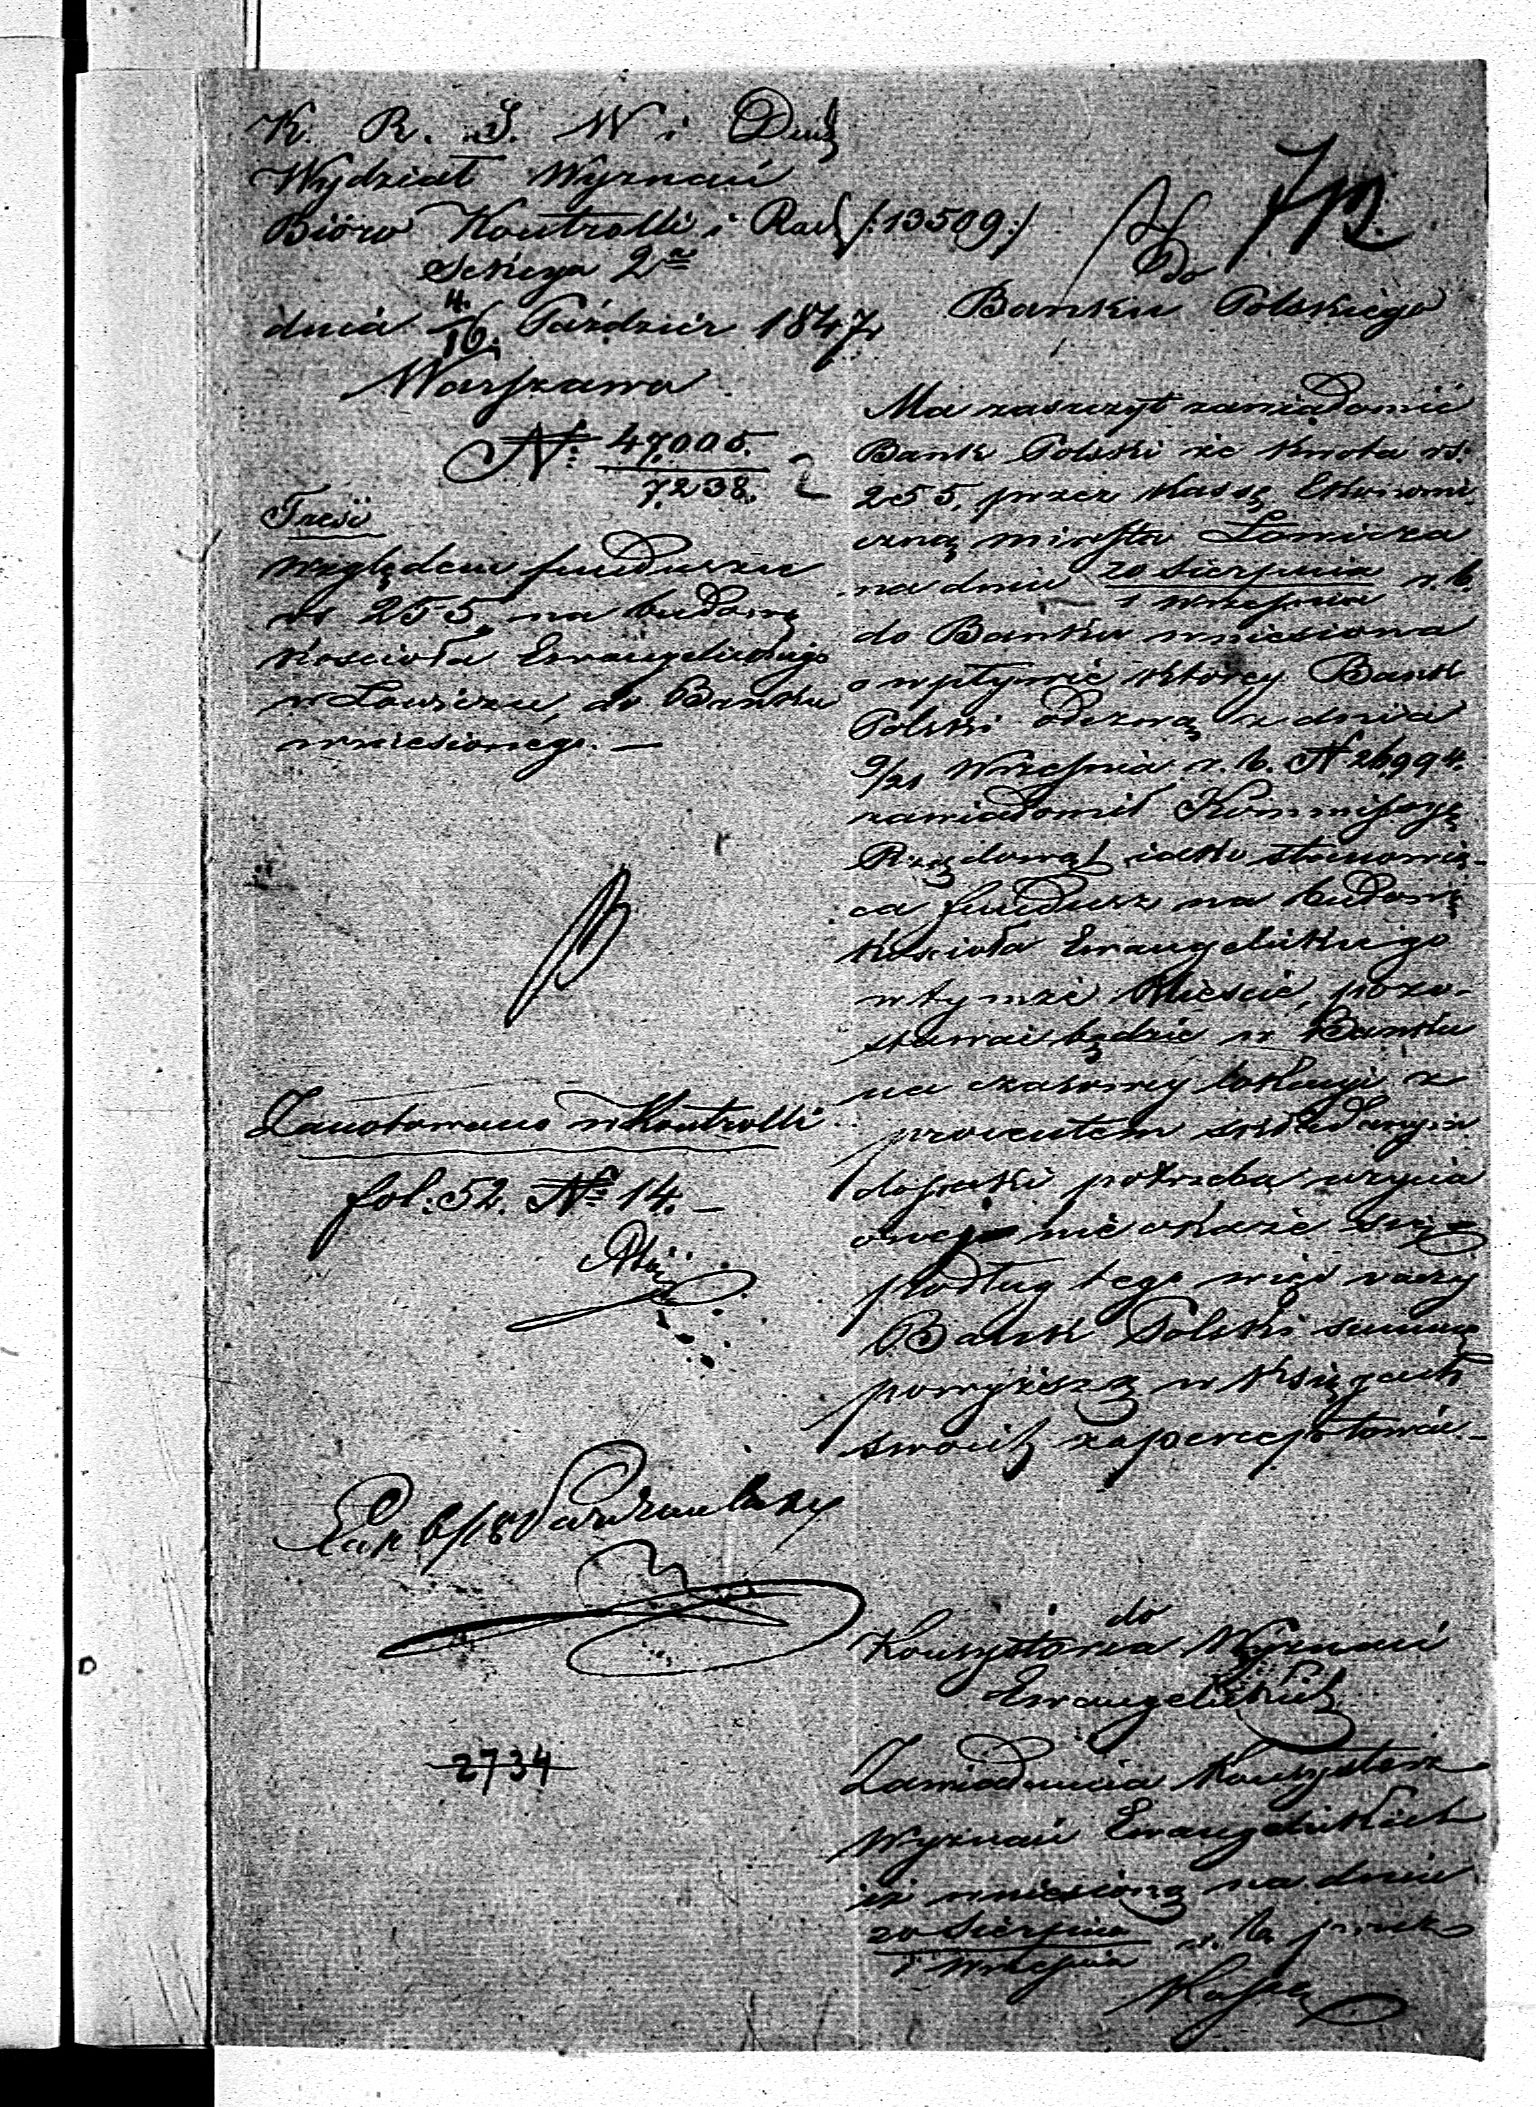 K. R. S. W i Duch
Wydział Wyznań
Bióro Kontrolli i Rach /:13509:/
Sekcya 2ª
dnia 4/16 Paździer 1847
Warszawa
Nº 47,005.
7238.
Treść
względem funduszu
rs 255, na budowę
Kościoła Ewangelickiego
w Łowiczu, do Banku
wniesionego. —
Zanotowano w Kontrolli
fol: 52. Nº 14. —
2734
712.
Do
Banku Polskiego
Ma zaszczyt zawiadomić
Bank Polski że kwota rs:
255, przez Kassę Ekonomi
czną miasta Łowicza
na dniu 20 Sierpnia / 1 Września r. b.
do Banku wniesiona
o wpływie którey Bank
Polski odezwą z dnia
9/21 Września r. b. N 26,994.
zawiadomił Kommissyę
Rządową, iako stanowią-
ca fundusz na budowę
Kościoła Ewangelickiego
w tymże Mieście, pozo-
stawać będzie w Banku
na czasowey lokacyi z
procentem składanym
dopóki potrzeba użycia
onej nie okaże się
podług tego więc raczy
Bank Polski summę
powyższą w Księgach
swoich zapercepować. —
do
Konsystorza Wyznań
Ewangelickich
Zawiadamia Konsystorz
Wyznań Ewangelickich
iż wniesioną na dniu
20 Sierpnia / 1 Września r. b. przez
Kassę